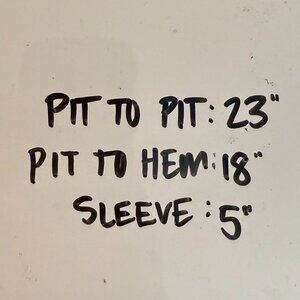 PIT TO PIT: 23"
PIT TO HEM: 18"
SLEEVE: 5"